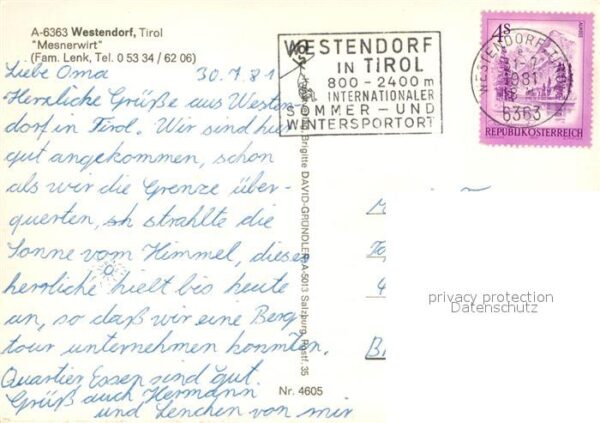 A-6363 Westendorf, Tirol
"Mesnerwirt"
(Fam. Lenk, Tel. 0 53 34 / 62 06)
Liebe Oma 30.7.81
Herzliche Grüße aus Westen
dorf in Tirol. Wir sind hier
gut angekommen, schon
als wir die Grenze über-
querten, strahlte die
Sonne vom Himmel, dieses
herrliche hielt bis heute
an, so daß wir eine Berg
tour unternehmen konnten.
Quartier Essen sind gut.
Grüß auch Hermann
und Lenchen von mir
WESTENDORF
IN TIROL
800-2400m
INTERNATIONALER
SOMMER-UND
WINTERSPORTORT
4S
REPUBLIK ÖSTERREICH
WESTENDORF
1981
6363
Brigitte DAVID-GRÜNDLER A-5013 Salzburg, Postf. 35
Nr. 4605
privacy protection
Datenschutz